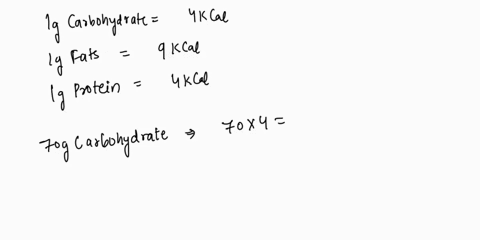 1g Carbohydrate = 4KCal
1g Fats = 9KCal
1g Protein = 4KCal
70g Carbohydrate ⇒ 70×4=